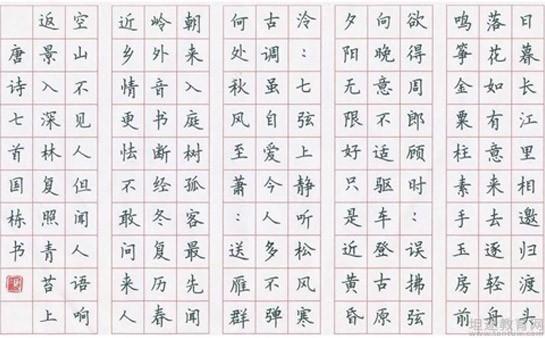 日暮长江里相邀归渡头
落花如有意来去逐轻舟
鸣筝金粟柱素手玉房前
欲得周郎顾时:误拂弦
向晚意不适驱车登古原
夕阳无限好只是近黄昏
泠:七弦上静听松风寒
古调虽自爱今人多不弹
何处秋风至萧:送雁群
朝来入庭树孤客最先闻
岭外音书断经冬复历春
近乡情更怯不敢问来人
空山不见人但闻人语响
返景入深林复照青苔上
唐诗七首国栋书